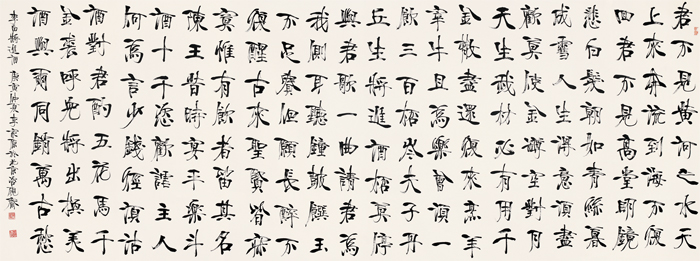 君不見黃河之水天
上來奔流到海不復
回君不見高堂明鏡
悲白髮朝如青絲暮
成雪人生得意須盡
歡莫使金尊空對月
天生我材必有用千
金散盡還復來烹羊
宰牛且為樂會須一
飲三百杯岑夫子丹
丘生將進酒杯莫停
與君歌一曲請君為
我側耳聽鐘鼓饌玉
不足貴但願長醉不
復醒古來聖賢皆寂
寞惟有飲者留其名
陳王昔時宴平樂斗
酒十千恣歡謔主人
何為言少錢徑須沽
酒對君酌五花馬千
金裘呼兒將出換美
酒與爾同銷萬古愁
李白將進酒